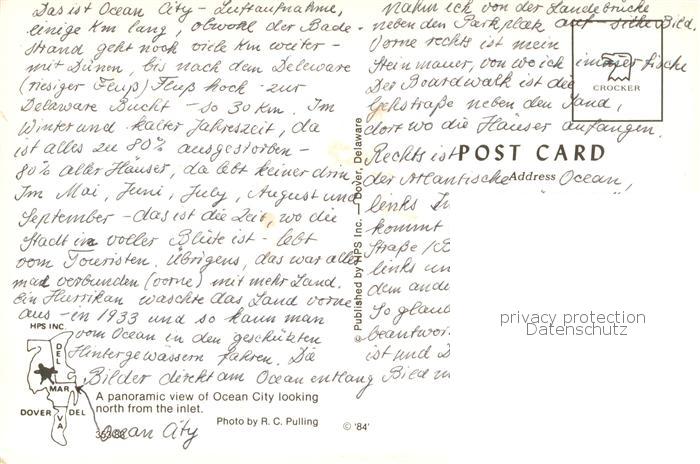 Das ist Ocean City – Luftaufnahme,
einige Km lang, obwohl der Bade-
strand geht noch viele Km weiter –
mit Dünen, bis nach dem Delaware
(riesiger Fluß) Fluß hoch – zur
Delaware Bucht – so 30 km. Im
Winter und kalter Jahreszeit, da
ist alles zu 80% ausgestorben –
80% aller Häuser, da lebt keiner drin.
Im Mai, Juni, July, August und
September – das ist die Zeit, wo die
Stadt in voller Blüte ist – lebt
vom Touristen. Übrigens, das war alles
mal verbunden (vorne) mit mehr Land.
Ein Hurrikan waschte das Land vorne
aus – in 1933 und so kann man
vom Ocean in den geschützten
Hintergewässern fahren. Die
Bilder direkt am Ocean entlang
nahm ich von der Landebrücke
neben den Parkplatz auf – siehe Bild.
Vorne rechts ist mein
Steinmauer, von wo ich immer fische
Der Boardwalk ist die
Gehstraße neben den Sand,
dort wo die Häuser anfangen.
Rechts ist
der Atlantische Ocean,
links
kommt
Straße
links
dem
So
ist und
Bild
CROCKER
POST CARD
Address
© Published by HPS Inc. — Dover, Delaware
privacy protection
Datenschutz
HPS INC.
DEL
MAR
VA
DOVER DEL
A panoramic view of Ocean City looking
north from the inlet.
Photo by R. C. Pulling
© '84'
Ocean City